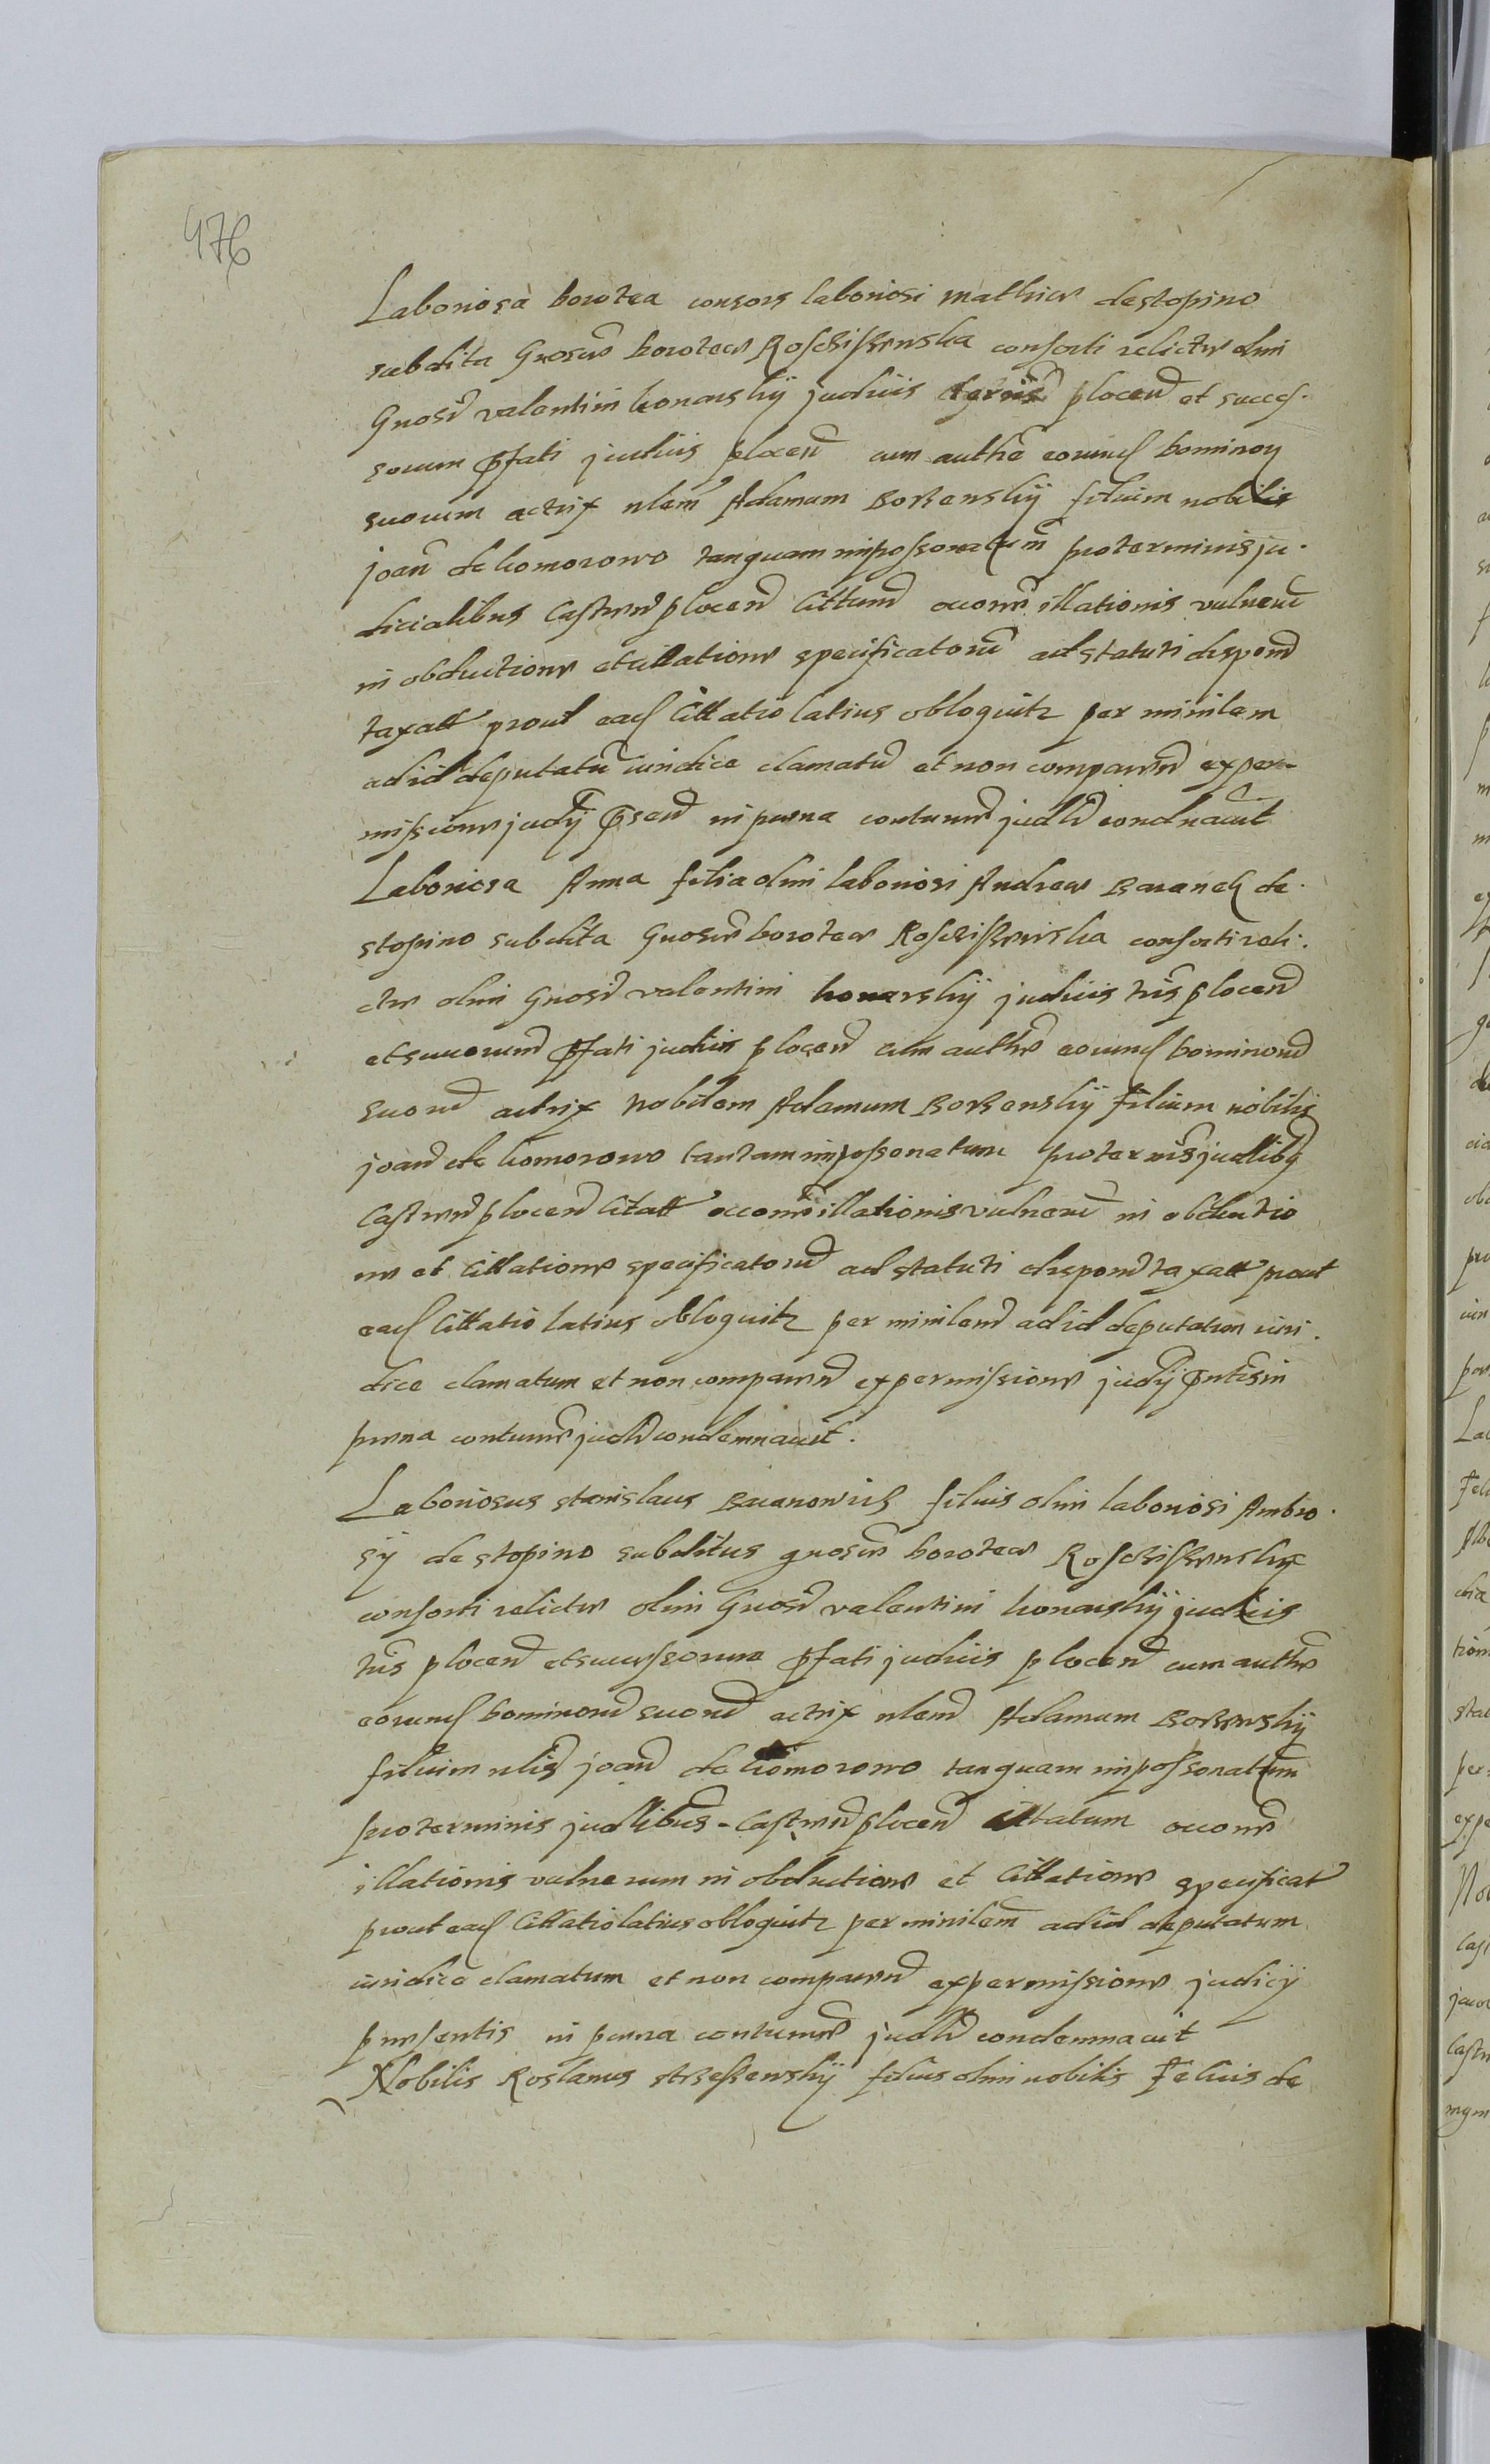 476
Laboriosa Dorotea consors laboriosi Mathiae de Stopino
subdita Gnosae Doroteae Rosciszewska consorti relictae olim
Gnosi Valentini Konarskij judicis terris plocen et succes-
sorum pfati judicis plocen cum authe eorund dominor
suorum actrix nlem Adamum Borzenskij filium nobilis
Joan de Komorowo tanquam impossonatum pro terminis ju-
dicialibus Castren plocen Cittum occone illationis vulneru
in obductione et cittatione specificatoru ad statuti dispon
taxatt prout ead Cittatio latius obloquitr per minilem
ad id deputatu iuridice clamatu et non comparen ex per-
missione judij psen in paena contumae judli condnavit
Laboriosa Anna filia olim laboriosi Andreae Baranek de
Stopino subdita Gnosae Doroteae Rosciszewska consorti reli-
ctae olim Gnosi Valentini Konarskij judicis tris plocen
et succorum pfati judicis plocen cum authe eorund dominoru
suoru actrix Nobilem Adamum Borzenskij filium nobilis
Joan de Komorowo tantam impossonatum pro termis judlibq
Castren plocen Citatt occone illationis vulneru in obductio
ne et Cittatione specificatoru ad statuti dispon taxatt prout
ead Cittatio latius obloquitr per minilem ad id deputatum iuri-
dice clamatum et non comparen ex permissione judij pntis in
paena contumae judli condemnavit.
Laboriosus Stanislaus Baranowicz filius olim laboriosi Ambro-
sij de Stopino subditus gnosae Doroteae Rosciszewskae
consorti relictae olim Gnosi Valentini Konarskij judicis
tris plocen et successorum pfati judicis plocen cum authe
eorund dominoru suoru actrix nlem Adamum Borzenskij
filium nlis Joan de Komorowo tanquam impossonatum
pro terminis judlibus Castren plocen Cittatum occone
illationis vulnerum in obductione et Cittatione specificat
prout ead Cittatio latius obloquitr per minilem ad id deputatum
iuridice clamatum et non comparen ex permissione judicij
praesentis in paena contumae judli condemnavit
Nobilis Roslanus Strzeszewskij filius olim nobilis Felicis de